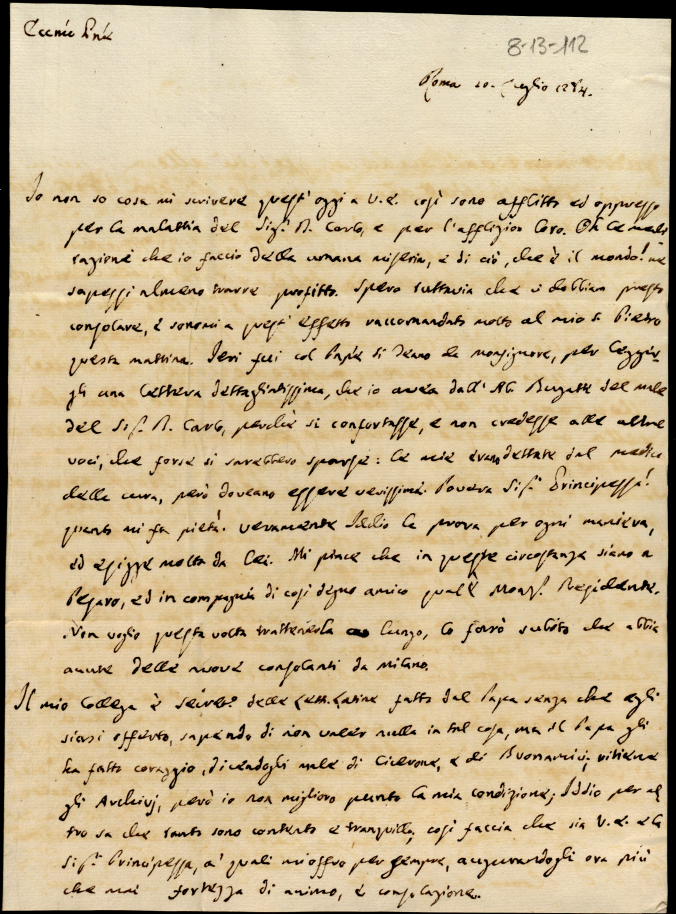 Eccmo Pnē
8-13-112
Roma 10. Luglio 1784.
Io non so cosa mi scrivere quest' oggi a V.E. così sono afflitto ed oppresso
per la malattia del Sigr. D. Carlo, e per l'afflizion Loro. Oh le medi
tazioni che io faccio della umana miseria, e di ciò, che è il mondo! ne
sapessi almeno trarre profitto. Spero tuttavia che ci dobbiam presto
consolare, e sonomi a quest' effetto raccomandato molto al mio S. Pietro
questa mattina. Ieri fui col Papa si Teano da monsignore, per legger-
gli una Lettera dettagliatissima, che io avea dall' Ab. Bugatti del male
del Sigr. D. Carlo, perchè si confortasse, e non credesse alle altre
voci, che forse si sarebbero sparse: le mie erano dettate dal medico
della cura, però doveano essere verissime. Povera Sigra Principessa!
quanto mi fa pietà! veramente Iddio la prova per ogni maniera,
ed esigge molto da Lei. Mi piace che in queste circostanze siano a
Pesaro, ed in compagnia di così degno amico qual'è Monsr. Presidente.
Non voglio questa volta trattenerla a lungo, lo farò subito che abbia
avute delle nuove consolanti da Milano.
Il mio Collega è Seireto delle Lett. Latine fatto dal Papa senza che egli
siasi offerto, sapendo di non valer nulla in tal cosa, ma il Papa gli
ha fatto coraggio, dicendogli male di Cicerone, e di Buonamici; ritiene
gli Archivj, però io non miglioro punto la mia condizione; Iddio per al
tro sa che tanto sono contento e tranquillo, così faccia che sia V.E. e la
Sigra Principessa, a' quali mi offro per sempre, augurandogli ora più
che mai fortezza di animo, e consolazione.